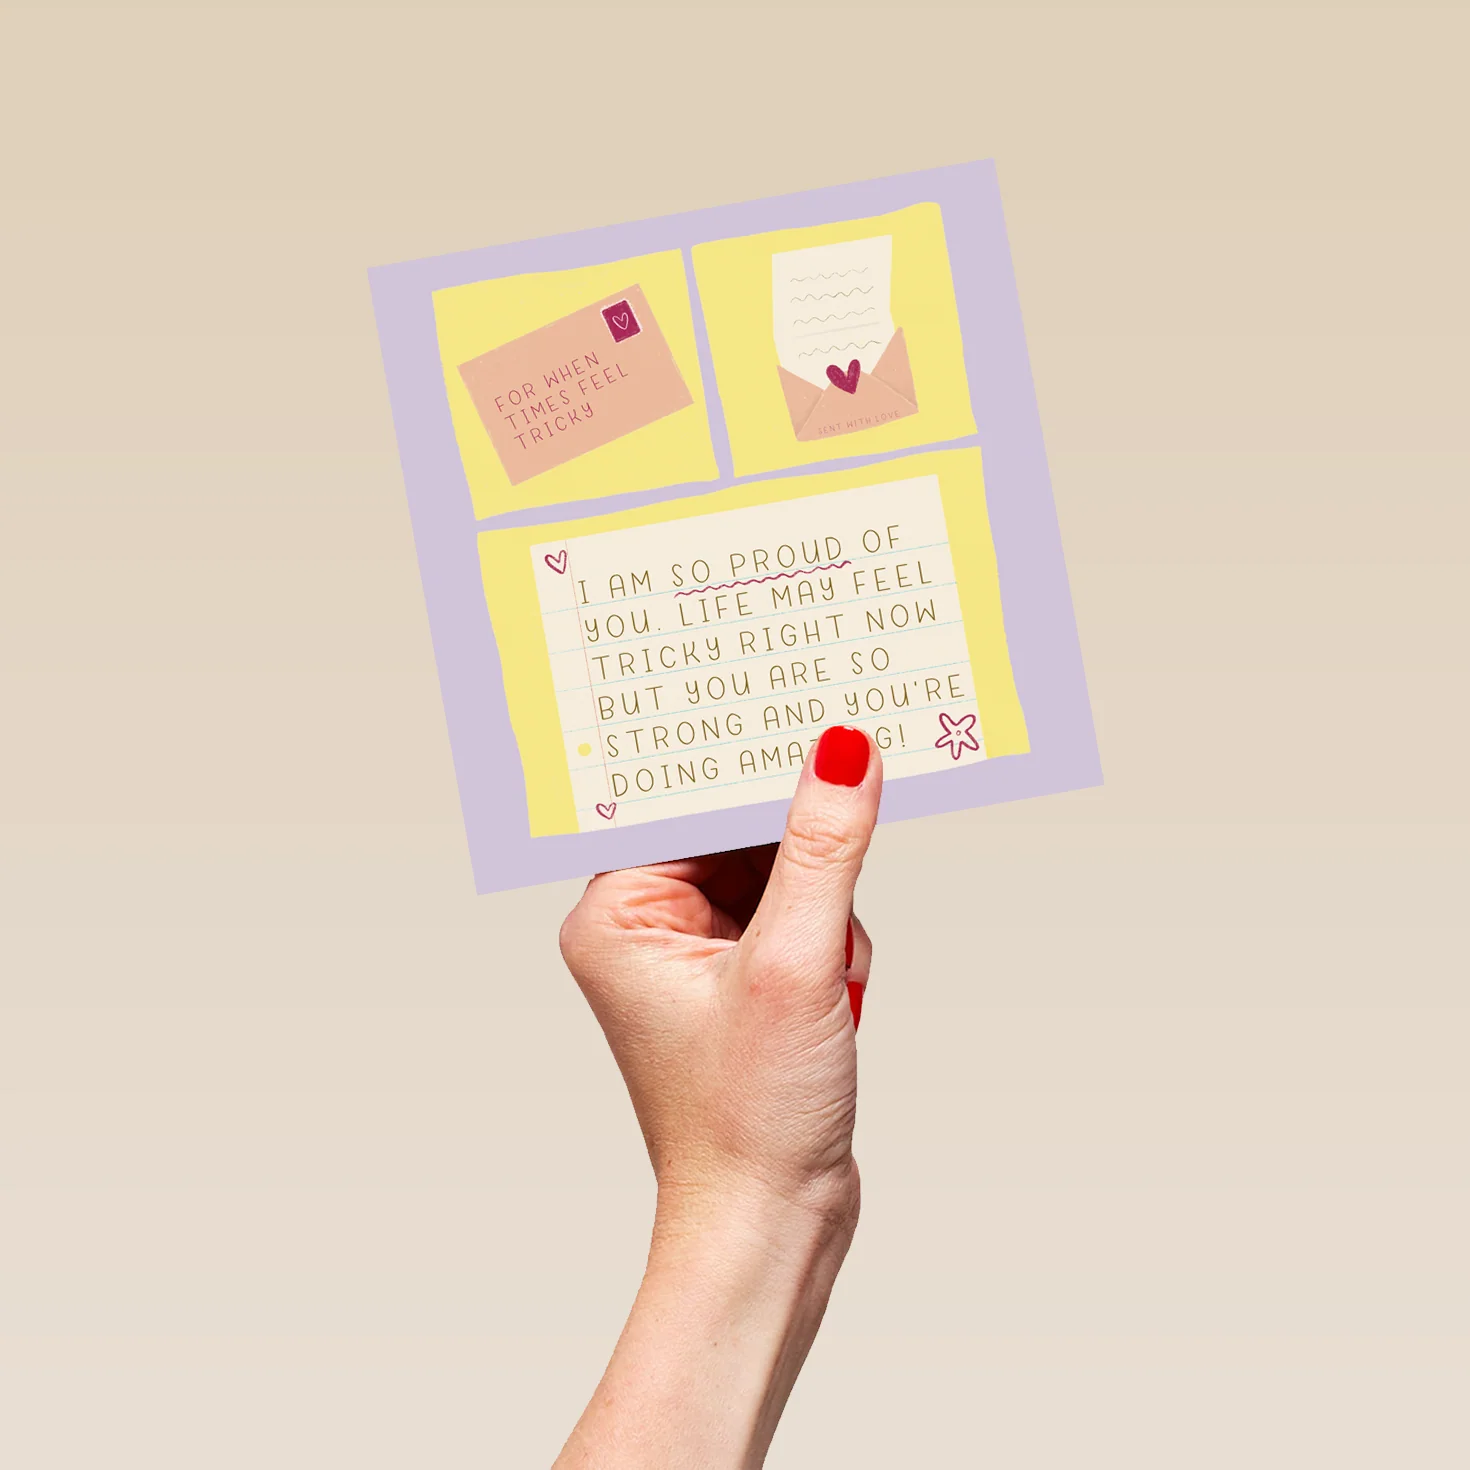 FOR WHEN
TIMES FEEL
TRICKY
SENT WITH LOVE
I AM SO PROUD OF
YOU. LIFE MAY FEEL
TRICKY RIGHT NOW
BUT YOU ARE SO
STRONG AND YOU'RE
DOING